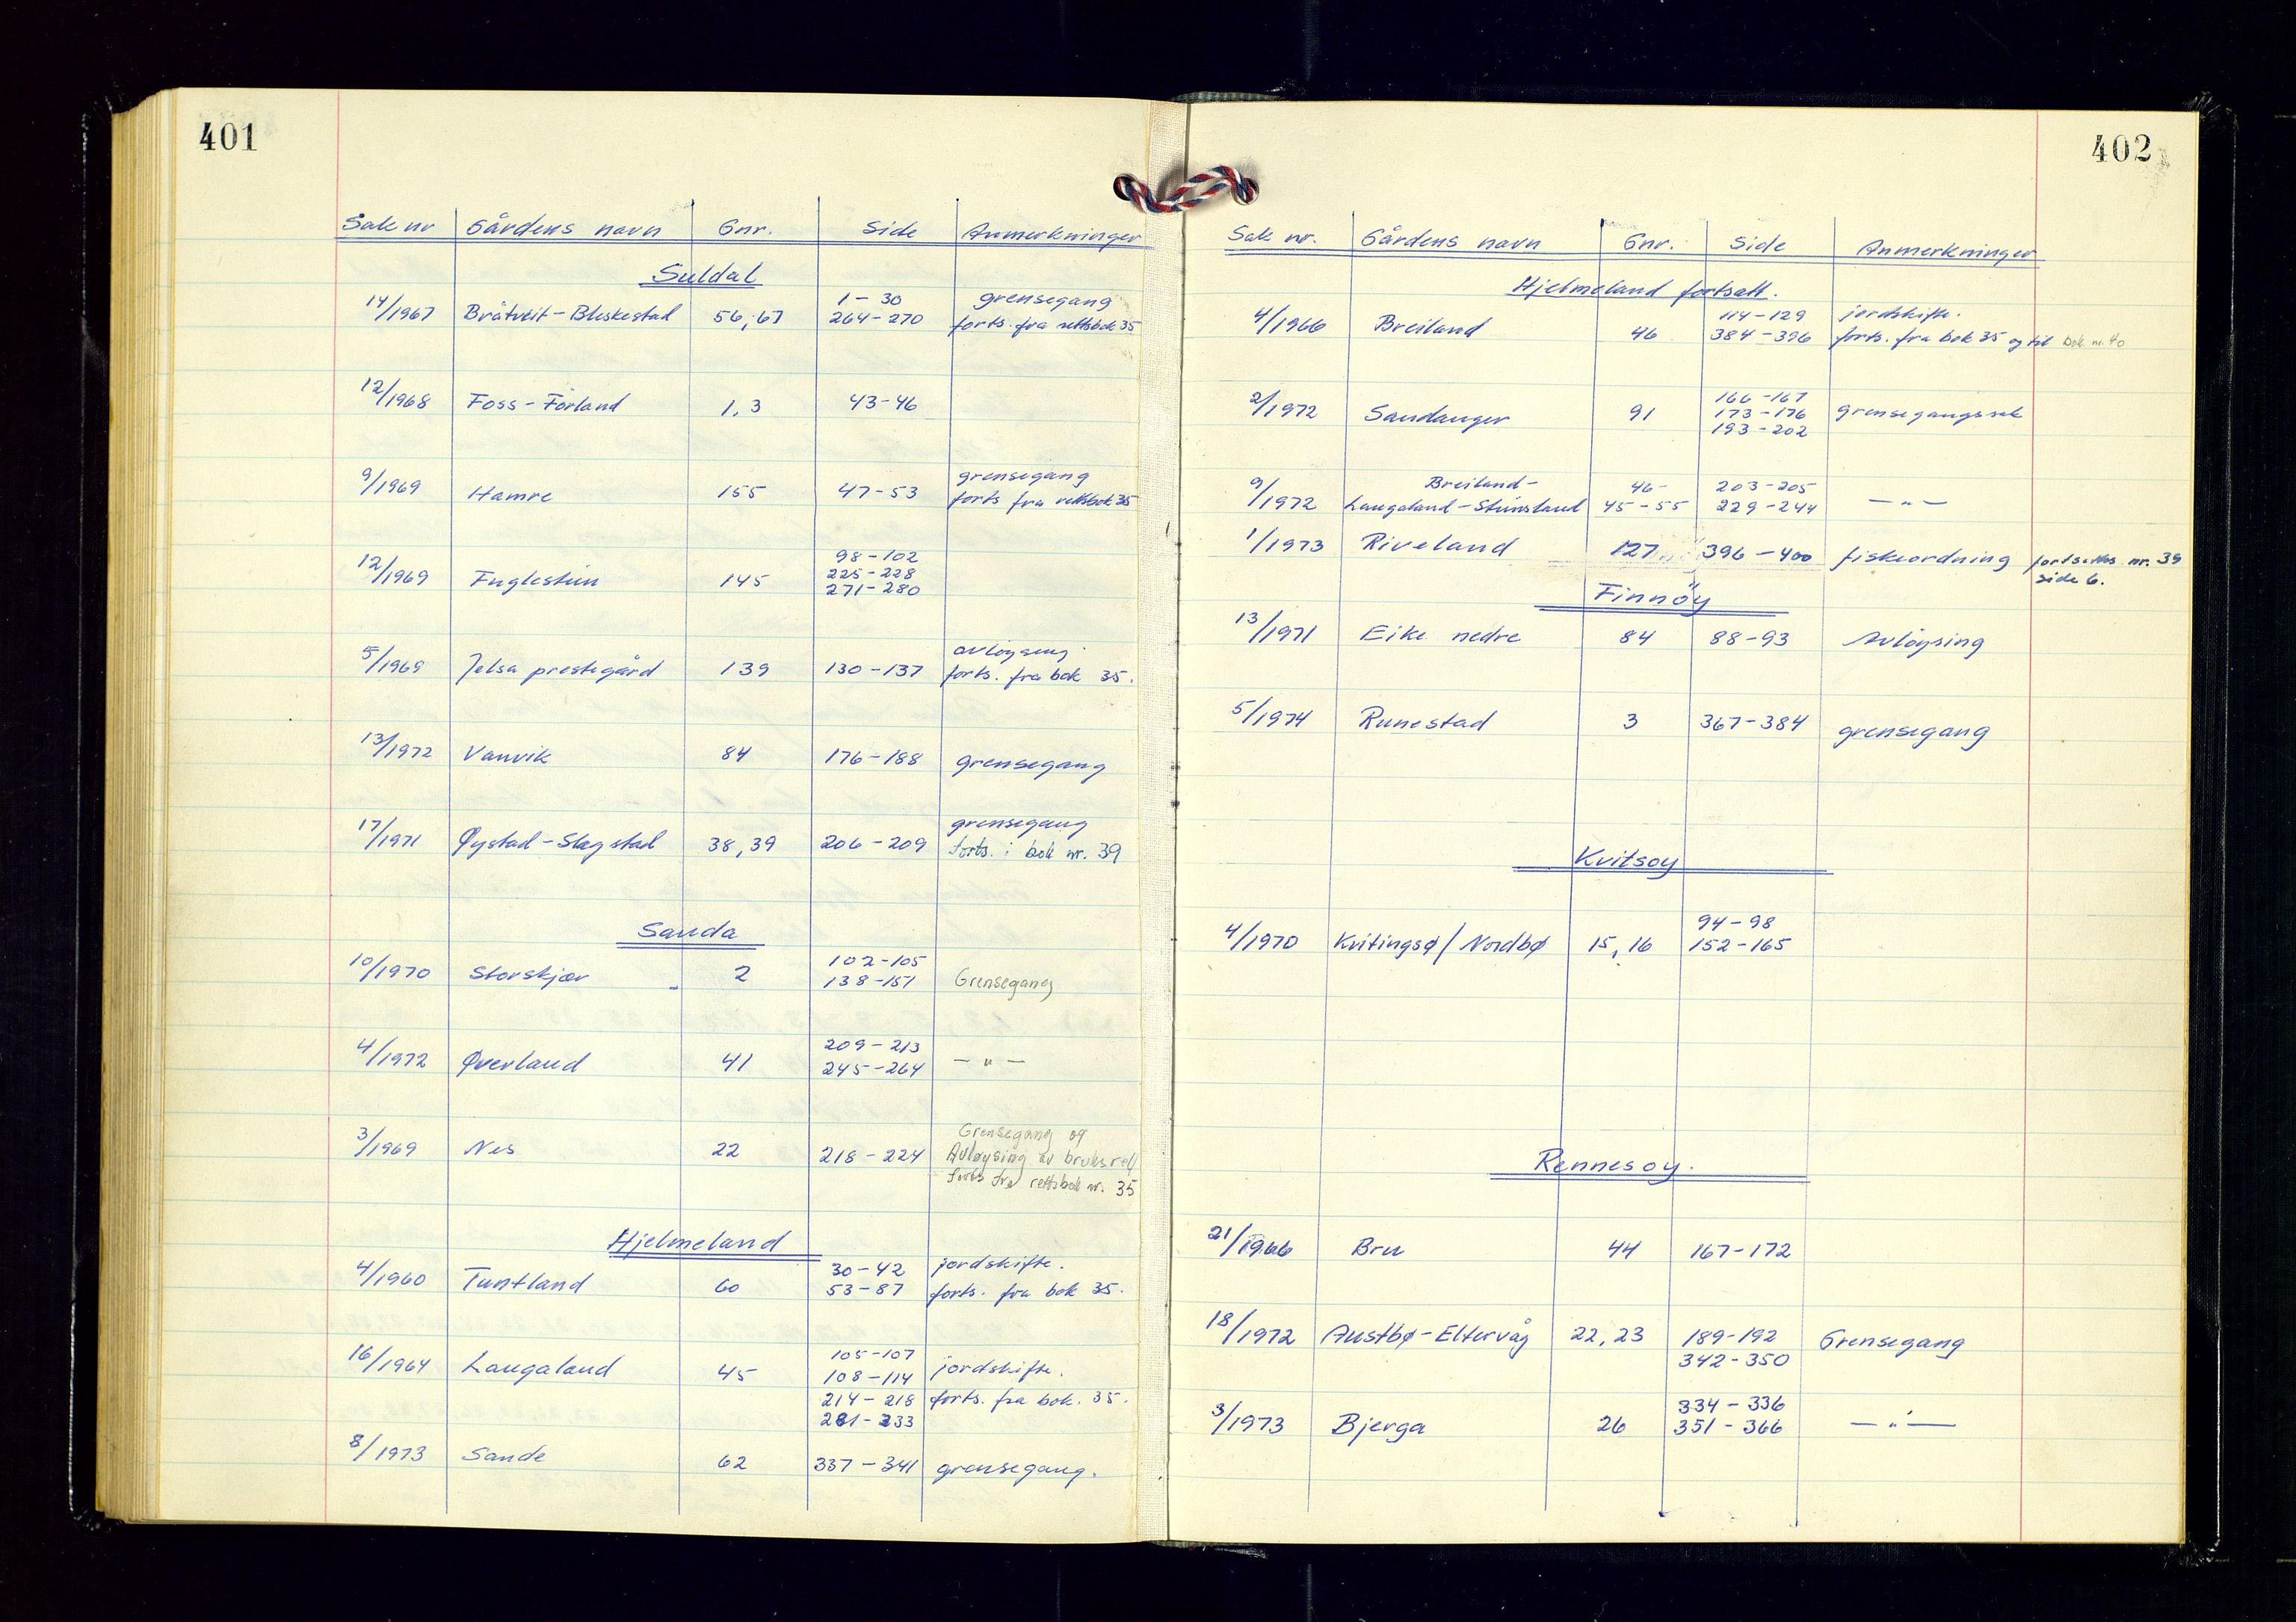 401
Sak nr Gårdens navn Gnr. Side Anmerkninger
Suldal
14/1967 Bråtveit - Bleskestad 56, 67 1 - 30 grensegang
264 - 270 forts. fra rettsbok 35
12/1968 Foss - Førland 1, 3 43 - 46
9/1969 Hamre 155 47 - 53 grensegang
forts fra rettsbok 35
12/1969 Fuglestein 145 98 - 102
225 - 228
271 - 280
5/1969 Jelsa prestegård 139 130 - 137 avløysing
forts. fra bok 35.
13/1972 Vanvik 84 176 - 188 grensegang
17/1971 Øystad - Slagstad 38, 39 206 - 209 grensegang
forts. i bok nr. 39
Sauda
10/1970 Storskjær 2 102 - 105
138 - 151 Grensegang
4/1972 Øverland 41 209 - 213
245 - 264 — " —
3/1969 Nes 22 218 - 224 Grensegang og
Avløysing av bruksrett
forts fra rettsbok nr. 35
Hjelmeland
4/1960 Tuntland 60 30 - 42 jordskifte.
53 - 87 forts. fra bok 35.
16/1964 Laugaland 45 105 - 107
108 - 114 jordskifte.
214 - 218 forts. fra bok. 35.
281 - 333
8/1973 Sande 62 337 - 341 grensegang.
402
Sak nr. Gårdens navn Gnr. Side Anmerkninger
Hjelmeland fortsatt.
4/1966 Breiland 46 114 - 129 jordskifte.
384 - 396 forts. fra bok 35 og til bok nr. 40
2/1972 Sandanger 91 166 - 167
173 - 176 grensegangssak
193 - 202
9/1972 Breiland - 46 - 203 - 205
Laugaland - Steinsland 45 - 55 229 - 244 — " —
1/1973 Riveland 127 396 - 400 fiskeordning fortsettes nr. 39
side 6.
Finnöy
13/1971 Eike nedre 84 88 - 93 Avløysing
5/1974 Runestad 3 367 - 384 grensegang
Kvitsoy
4/1970 Kvitingsø / Nordbø 15, 16 94 - 98
152 - 165
Rennesoy.
21/1966 Bru 44 167 - 172
18/1972 Austbø - Eltervåg 22, 23 189 - 192 Grensegang
342 - 350
3/1973 Bjerga 26 334 - 336
351 - 366 — " —